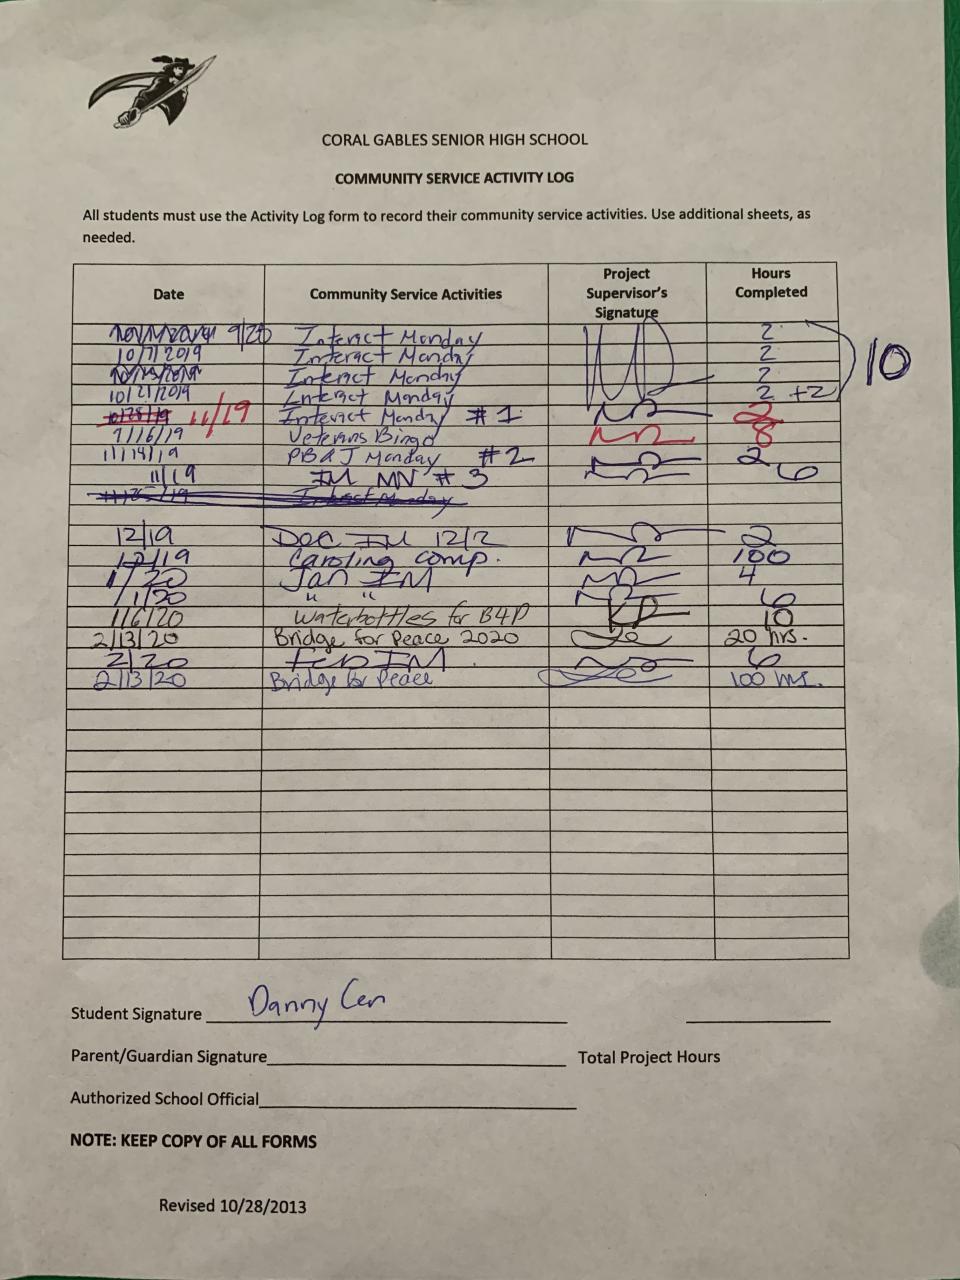 CORAL GABLES SENIOR HIGH SCHOOL
COMMUNITY SERVICE ACTIVITY LOG
All students must use the Activity Log form to record their community service activities. Use additional sheets, as
needed.
Date Community Service Activities Project Supervisor's Signature Hours Completed
9/20 Interact Monday 2
10/7/2019 Interact Monday 2
Interact Monday 2 10
10/21/2019 Interact Monday 2 +2
10/28/19 11/19 Interact Monday #1 2
Veterans Bingo 8
11/14/19 PB&J Monday #2 2
11/19 IM MN #3 6
Interact Monday
12/19 Dec IM 12/2 2
12/19 Caroling comp. 100
1/20 Jan IM 4
1/1/20 " " 6
1/6/20 Waterbottles for B4P KP 10
2/13/20 Bridge for Peace 2020 20 hrs.
2/20 Feb IM 6
2/13/20 Bridge for Peace 100 hrs.
Student Signature Danny Cen
Parent/Guardian Signature Total Project Hours
Authorized School Official
NOTE: KEEP COPY OF ALL FORMS
Revised 10/28/2013